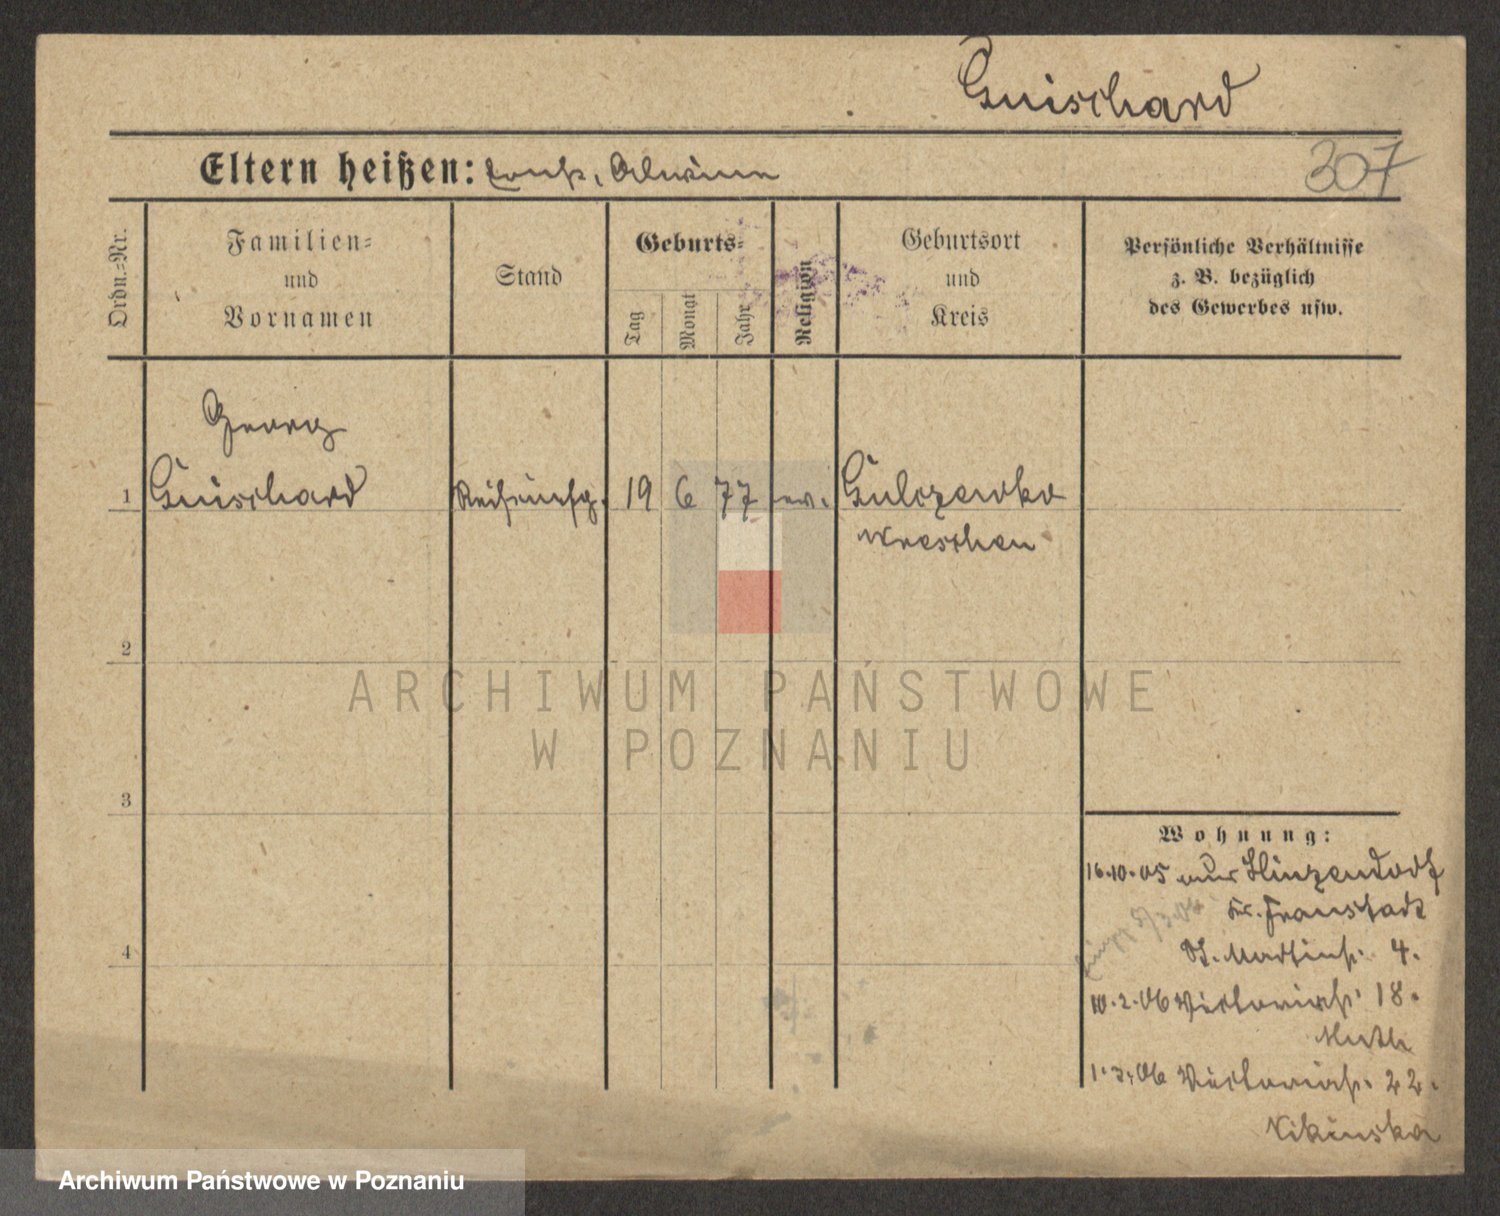 Guischard
Eltern heißen: Alwine
307
Ordn.=Nr.
Familien=
und
Vornamen
Stand
Geburts=
Tag
Monat
Jahr
Religion
Geburtsort
und
Kreis
Persönliche Verhältnisse
z. B. bezüglich
des Gewerbes usw.
Georg
1 Guischard 19 6 77 ev. Gulczewko
Wreschen
2
ARCHIWUM PAŃSTWOWE
W POZNANIU
3
Wohnung:
16.10.05 aus Hinzendorf
Kr. Fraustadt
St. Martinstr. 4.
4
10.2.06 Victoriastr. 18.
Muth
1.3.06 Victoriastr. 22.
Archiwum Państwowe w Poznaniu